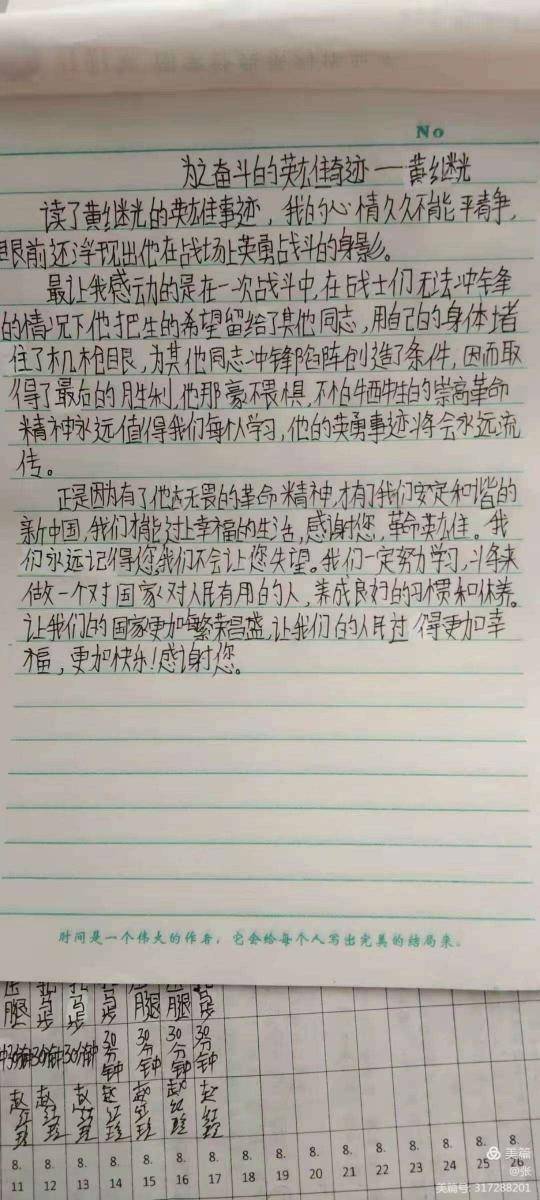 No
为之奋斗的英雄奇迹——黄继光
读了黄继光的英雄事迹，我的心情久久不能平静，
眼前还浮现出他在战场上英勇战斗的身影。
最让我感动的是在一次战斗中，在战士们无法冲锋
的情况下他把生的希望留给了其他同志，用自己的身体堵
住了机枪眼，为其他同志冲锋陷阵创造了条件，因而取
得了最后的胜利，他那豪不畏惧，不怕牺牲的崇高革命
精神永远值得我们每个人学习，他的英勇事迹将会永远流
传。
正是因为有了他这无畏的革命精神，才有了我们安定和谐的
新中国，我们才能过上幸福的生活，感谢您，革命英雄。我
们永远记得您，我们不会让您失望。我们一定努力学习，将来
做一个对国家、对人民有用的人，养成良好的习惯和休养。
让我们的国家更加每繁荣昌盛，让我们的人民过得更加幸
福，更加快乐！感谢您。
时间是一个伟大的作者，它会给每个人写出完美的结局来。
腿 步 步 步 腿 腿 步
30分钟 30分钟 30分钟 30分钟 30分钟 30分钟
8. 8. 8. 8. 8. 8. 8. 8. 8. 8. 8. 8. 8. 8. 8. 8.
11 12 13 14 15 16 17 18 19 20 21 22 23 24 25 26
美篇 @张
美篇号: 317288201